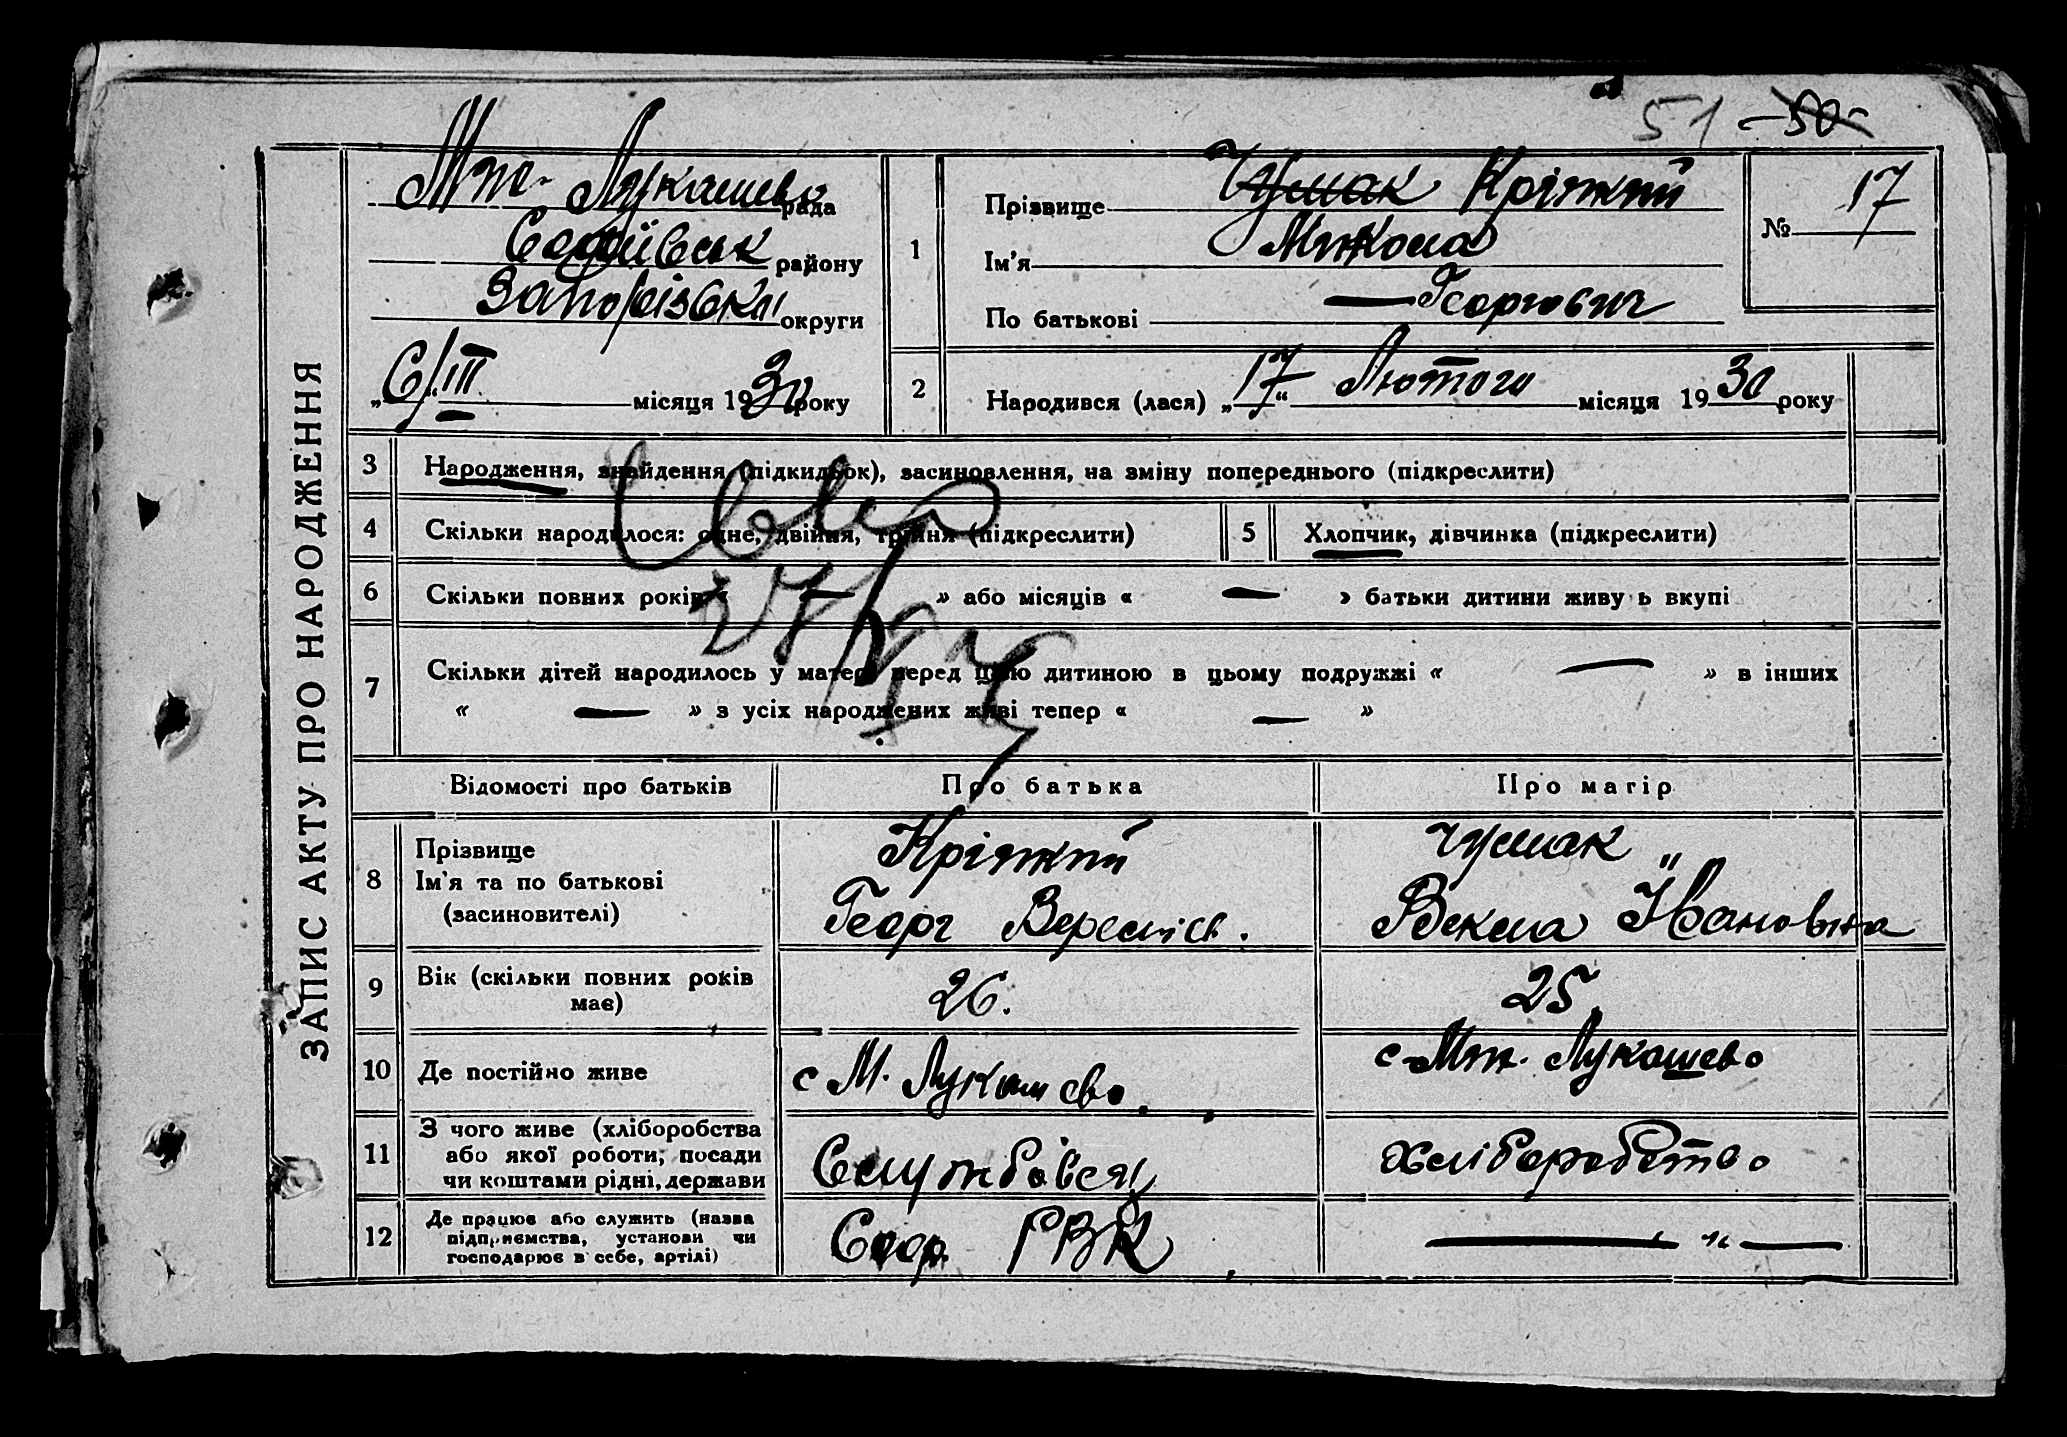 51 -30-
Мик. Лукашево рада
Софіївськ району
Запорізька округи
„6/III місяця 1930 року
1
Прізвище Чумак Кріжтий
Ім’я Микола
По батькові Георгович
№ 17
2
Народився (лася) „17“ Лютого місяця 1930 року
ЗАПИС АКТУ ПРО НАРОДЖЕННЯ
3 Народження, знайдення (підкидьок), засиновлення, на зміну попереднього (підкреслити)
4 Скільки народилося: одне, двійня, трійня (підкреслити)
5 Хлопчик, дівчинка (підкреслити)
6 Скільки повних років « — » або місяців « — » батьки дитини живу ь вкупі
7 Скільки дітей народилось у матері перед цією дитиною в цьому подружжі « — » в інших
« — » з усіх народжених живі тепер « — »
27/V
Відомості про батьків Про батька Про матір
8 Прізвище
Ім’я та по батькові
(засиновителі)
Георг
Чумак
Векла Івановна
9 Вік (скільки повних років
має)
26.
25
10 Де постійно живе
с М. Лукашево.
с Мик. Лукашево
11 З чого живе (хліборобства
або якої роботи, посади
чи коштами рідні, держави
Службовся
хліборобство
12 Де працює або служить (назва
підприємства, установи чи
господарює в себе, артілі)
Соф. РВК
— " —